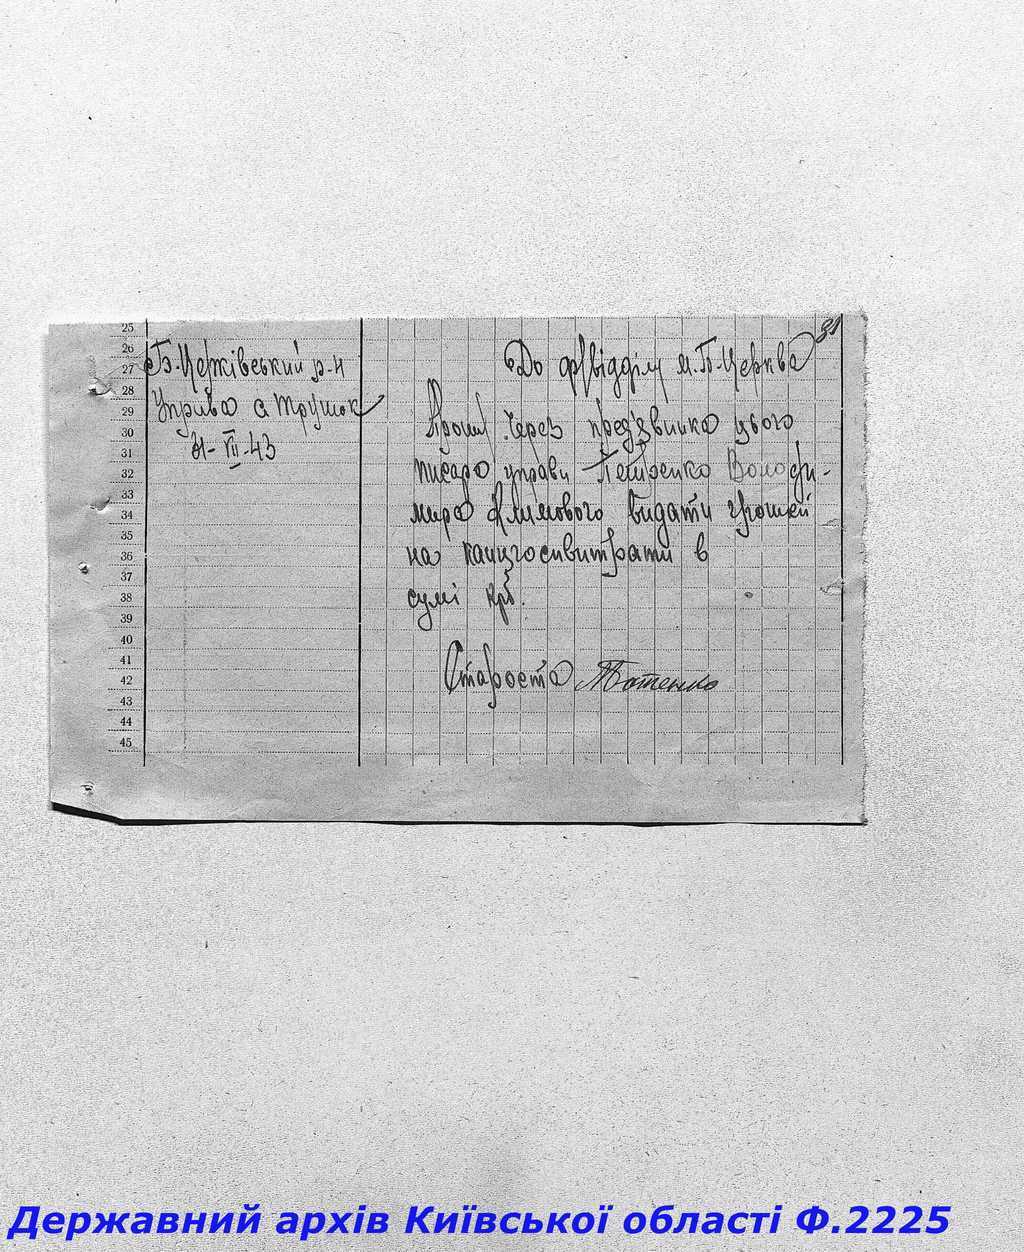 91
25
26
27
28
29
30
31
32
33
34
35
36
37
38
39
40
41
42
43
44
45
Б-Церківський р-н
Управа с. Трушок
31-VII-43
До фінвідділу м. Б-Церква
Прошу через пред'явника цього
писаря управи Петренко Володи-
мира Климового видати грошей
на канцгоспвитрати в
сумі крб.
Староста
Державний архів Київської області Ф.2225